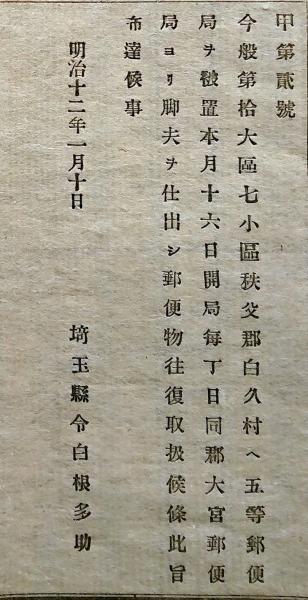 甲第貳號
今般第拾大區七小區秩父郡白久村ヘ五等郵便
局ヲ被置本月十六日開局毎丁日同郡大宮郵便
局ヨリ脚夫ヲ仕出シ郵便物往復取扱候條此旨
布達候事
明治十二年一月十日
埼玉縣令白根多助